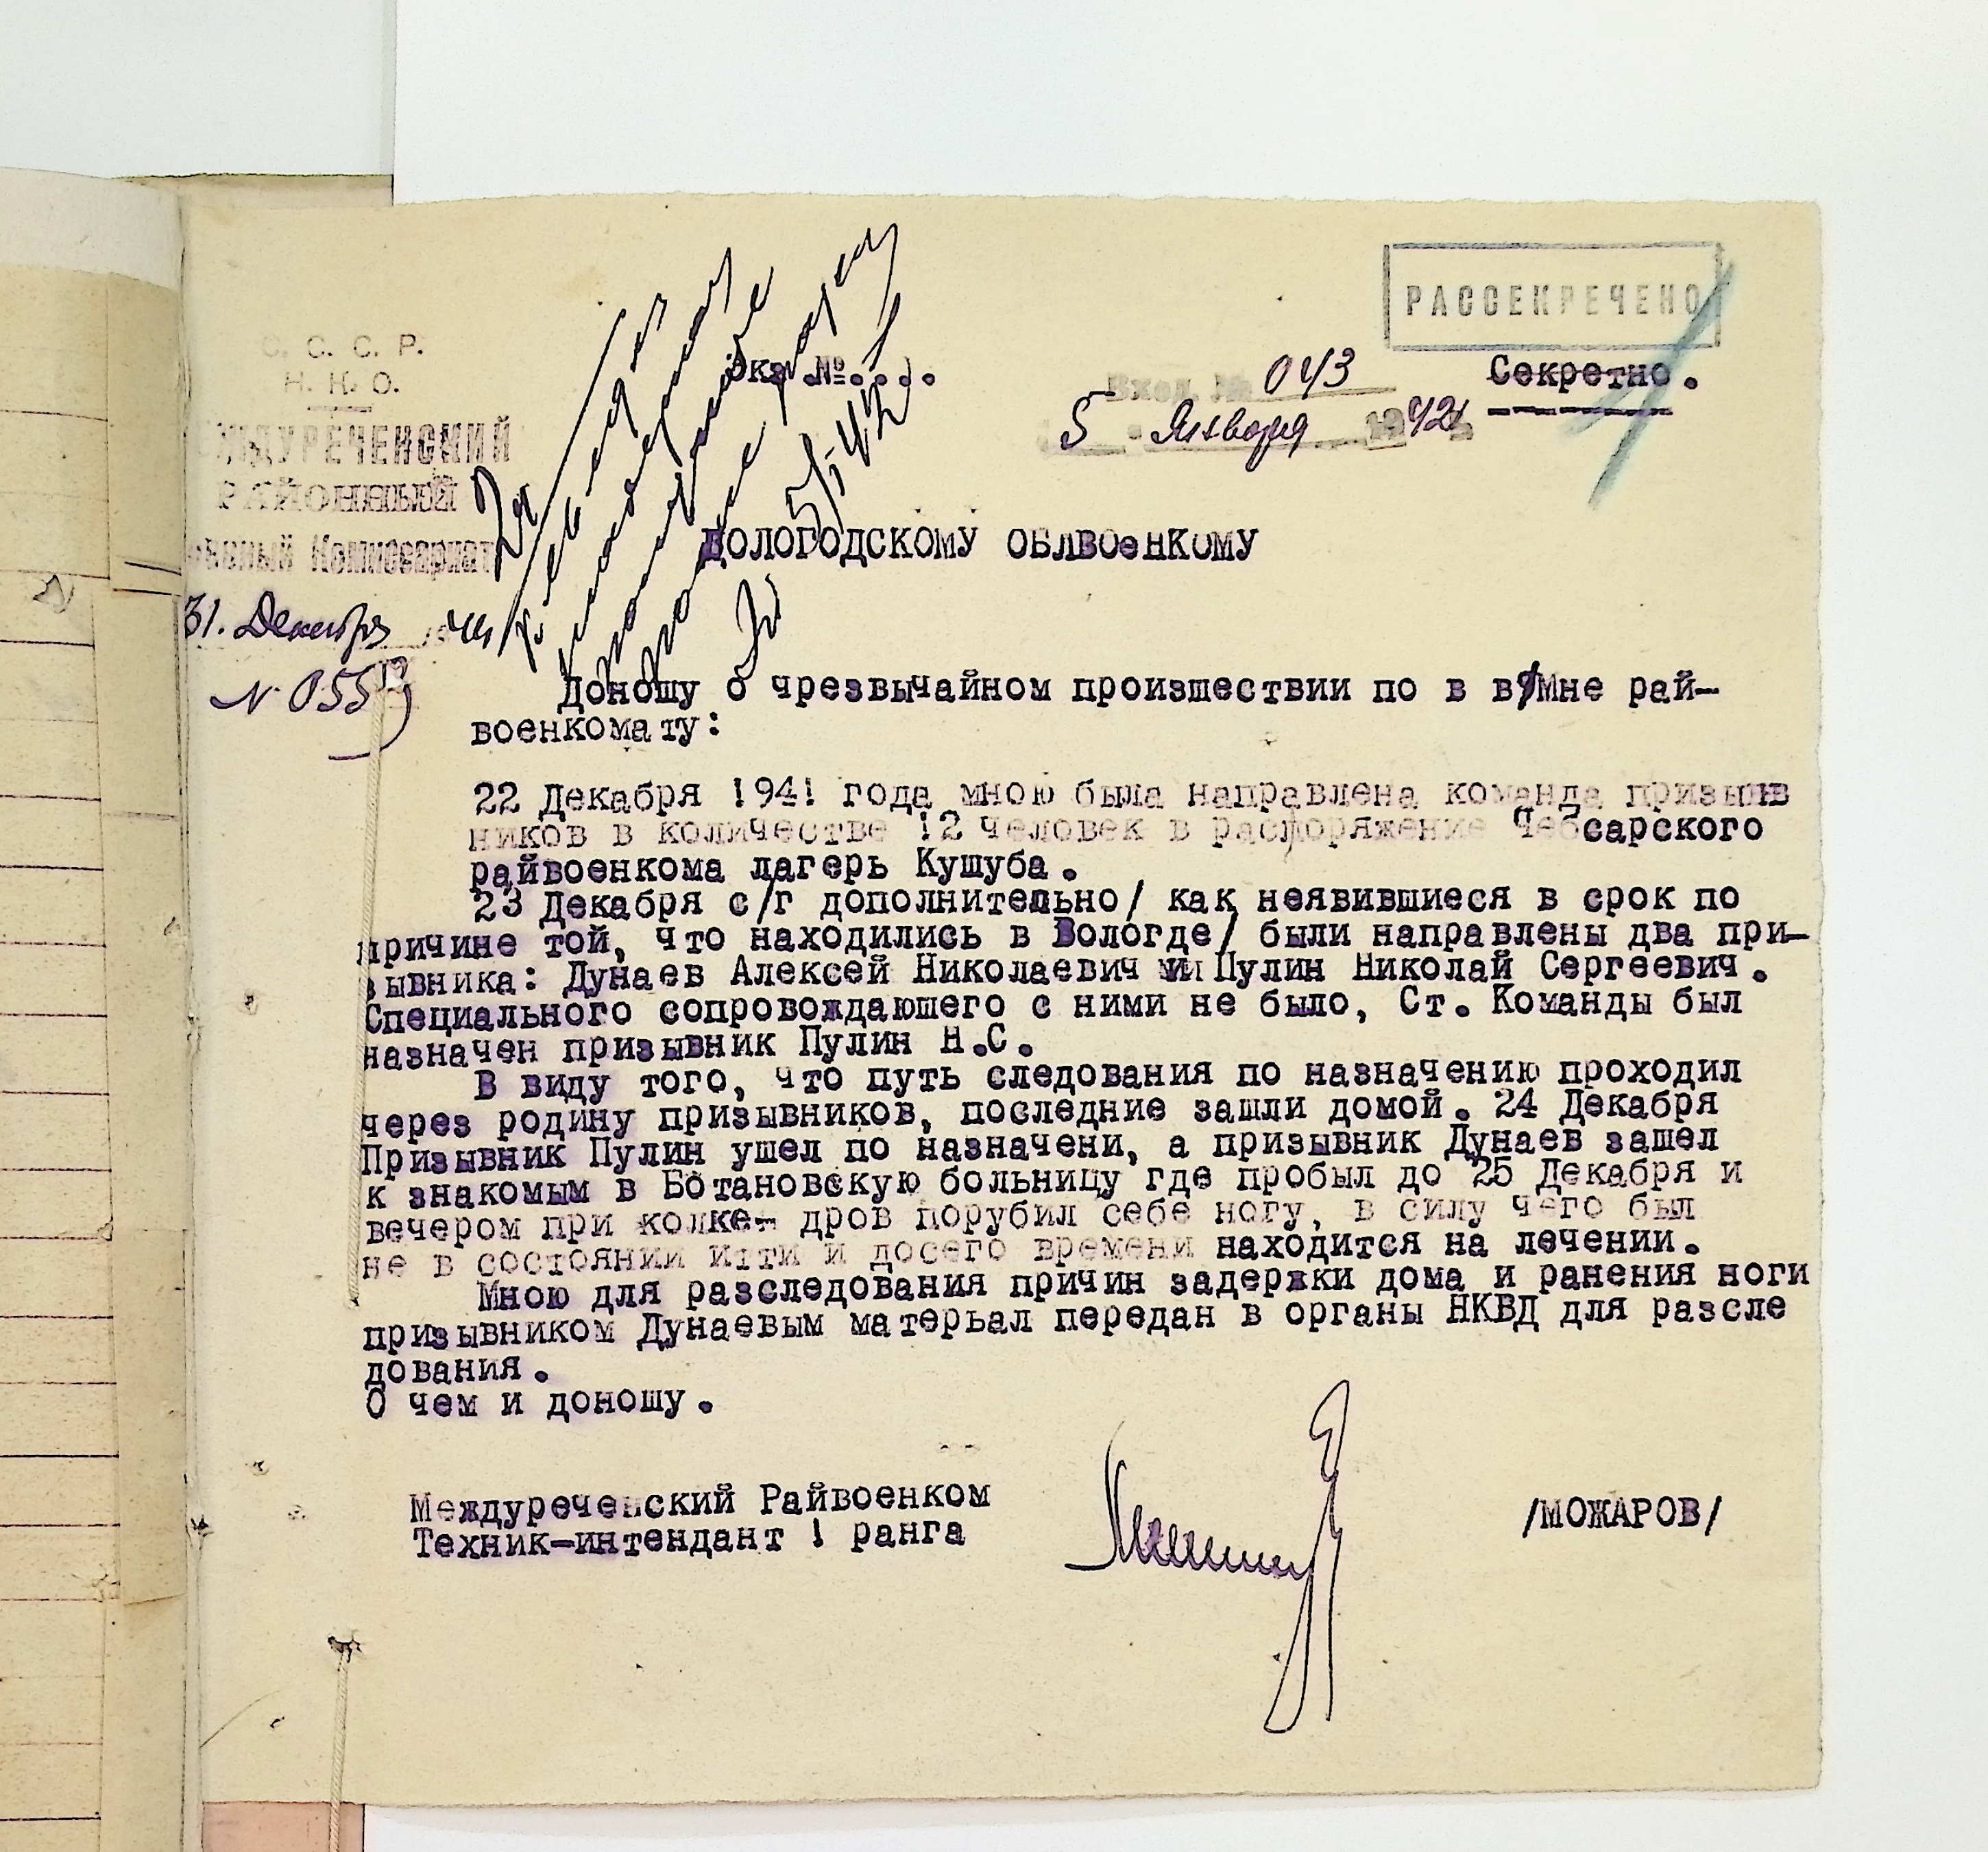 РАССЕКРЕЧЕНО
С. С. С. Р.
Н. К. О.
МЕЖДУРЕЧЕНСКИЙ
РАЙОННЫЙ
Военный Комиссариат
31. Декабря 1941
№ 055
Экз №....
Вход. № 043
5 Января 1942
Секретно.
5/I-42
ВОЛОГОДСКОМУ ОБЛВОеНКОМУ
Доношу о чрезвычайном произшествии по в вРМне рай-
военкомату:
22 Декабря !94! года мною была направлена команда призыв
ников в количестве !2 человек в распоряжение Чебсарского
райвоенкома лагерь Кушуба.
23 Декабря с/г дополнительно/ как неявившиеся в срок по
причине той, что находились в Вологде/ были направлены два при-
зывника: Дунаев Алексей Николаевич и Пулин Николай Сергеевич.
Специального сопровождаюшего с ними не было, Ст. Команды был
назначен призывник Пулин Н.С.
В виду того, что путь следования по назначению проходил
через родину призывников, последние зашли домой. 24 Декабря
Призывник Пулин ушел по назначени, а призывник Дунаев зашел
к знакомым в Ботановскую больницу где пробыл до 25 Декабря и
вечером при колке- дров порубил себе ногу, в силу чего был
не в состоянии итти и досего времени находится на лечении.
Мною для разследования причин задержки дома и ранения ноги
призывником Дунаевым матерьал передан в органы НКВД для разсле
дования.
О чем и доношу.
Междуреченский Райвоенком
Техник-интендант ! ранга
/МОЖАРОВ/